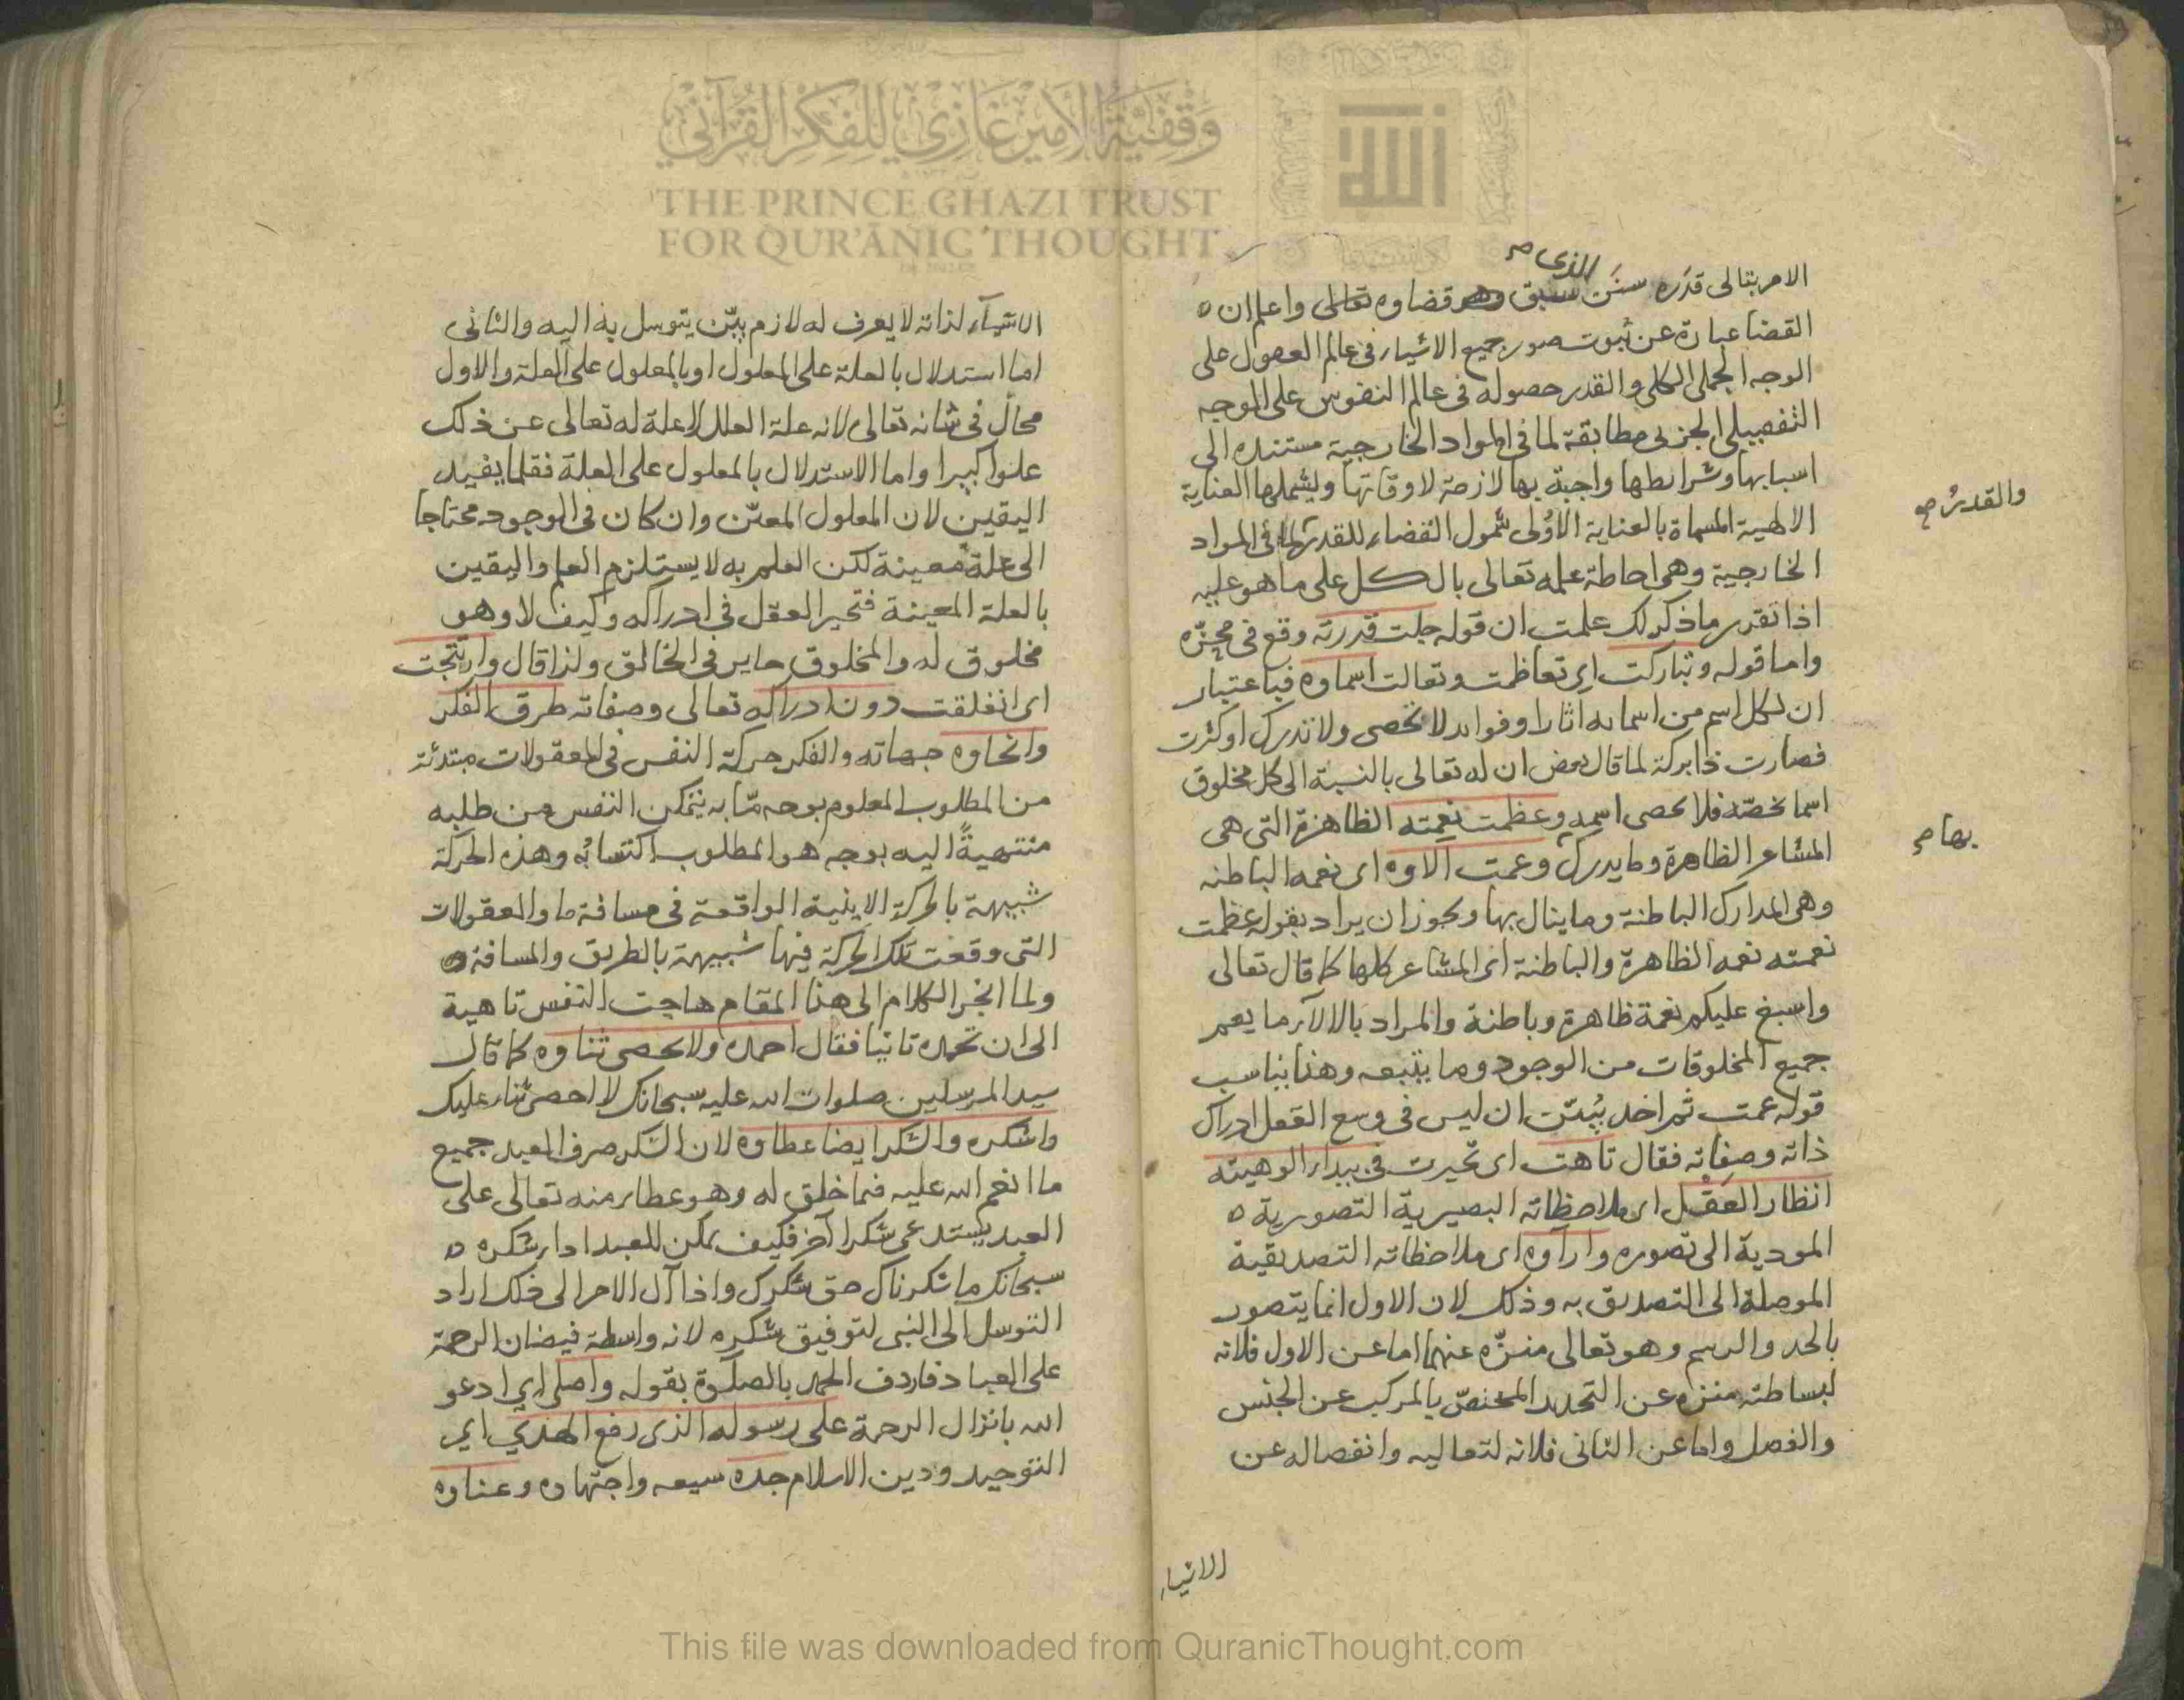 الامر بتالى قدره سنن سبق الذى قضاوه تعالى واعلم ان
القضا عبارة عن ثبوت صور جميع الاشياء فى عالم العقول على
الوجه الجملى الكلى والقدر حصوله فى عالم النفوس على الموجه
التفصيلى الجزىى مطابقة لما فى المواد الخارجية مستنده الى
اسبابها وشرايطها واجبة بها لازمة لاوقاتها ويشملهما العناية
والقدر صح
الالهية المسماة بالعناية الاولى شمول القضاء للقدر لما فى المواد
الخارجية وهى احاطة علمه تعالى بالكل على ما هو عليه
اذا تقرر ما ذكر لك علمت ان قوله جلت قدرته وقع فى محزه
واما قوله وتباركت اى تعاظمت وتعالت اسماوه فباعتبار
ان لكل اسم من اسمايه اثارا وفوايد لا تحصى ولا تدرك او كثرت
فصارت ذا بركة لما قال بعض ان له تعالى بالنسبة الى كل مخلوق
اسما يخصه فلا يحصى اسمه وعظمت نعمته الظاهرة التى هى
المشاعر الظاهرة وما يدرك وعمت الاوه اى نعمه الباطنه
بها صح
وهى المدارك الباطنة وما ينال بها ويجوز ان يراد بقوله عظمت
نعمته نعمه الظاهرة والباطنة اى المشاعر كلها كما قال تعالى
واسبغ عليكم نعمة ظاهرة وباطنة والمراد بالالآء ما يعم
جميع المخلوقات من الوجود وما يتبعه وهذا يناسب
قوله عمت ثم اخذ يبين ان ليس فى وسع العقل ادراك
ذاته وصفاته فقال تاهت اى تحيرت فى بيداء الوهيته
انظار العقل اى ملاحظاته البصيرية التصورية
المودية الى تصوره وارآوه اى ملاحظاته التصديقية
الموصلة الى التصديق به وذلك لان الاول انما يتصور
بالحد والرسم وهو تعالى منزه عنهما اما عن الاول فلانه
لبساطته منزه عن التحديد المختص بالمركب عن الجنس
والفصل واما عن الثانى فلانه لتعاليه وانفصاله عن
الاشياء
الاشيآء لذاته لا يعرف له لازم بين يتوسل به اليه والثانى
اما استدلال بالعلة على المعلول او بالمعلول على العلة والاول
محال فى شانه تعالى لانه علة العلل لا علة له تعالى عن ذلك
علوا كبيرا واما الاستدلال بالمعلول على العلة فقلما يفيد
اليقين لان المعلول المعين وان كان فى الوجود محتاجا
الى علة معينة لكن العلم به لا يستلزم العلم واليقين
بالعلة المعينة فتحير العقل فى ادراكه وكيف لا وهو
مخلوق له والمخلوق حاير فى الخالق ولذا قال وارتتجت
اى انغلقت دون ادراكه تعالى وصفاته طرق الفكر
وانحاوه جهاته والفكر حركة النفس فى المعقولات مبتدئة
من المطلوب المعلوم بوجه ما به يتمكن النفس من طلبه
منتهيةً اليه بوجه هو المطلوب اكتسابُه وهذه الحركة
شبيهة بالحركة الاينية الواقعة فى مسافة ما والمعقولات
التى وقعت تلك الحركة فيها شبيهة بالطريق والمسافة
ولما انجر الكلام الى هذا المقام هاجت النفس تاهية
الى ان تحمده ثانيا فقال احمده ولا يحصى ثناوه كما قال
سيد المرسلين صلوات الله عليه سبحانك لا احصى ثناء عليك
واشكره والشكر ايضا عطاوه لان الشكر صرف العبد جميع
ما انعم الله عليه فيما خلق له وهو عطاء منه تعالى على
العبد يستدعى شكرا آخر فكيف يمكن للعبد اداء شكره
سبحانك ما شكرناك حق شكرك واذا آل الامر الى ذلك اراد
التوسل الى النبى لتوفيق شكره لانه واسطة فيضان الرحمة
على العباد فاردف الحمد بالصلوة بقوله واصلى اى ادعو
الله بانزال الرحمة على رسوله الذى رفع الهدى اى
التوحيد ودين الاسلام جده سيعه واجتهاده وعناوه
وقفية الأمير غازي للفكر القرآني
THE PRINCE GHAZI TRUST
FOR QUR'ĀNIC THOUGHT
This file was downloaded from QuranicThought.com